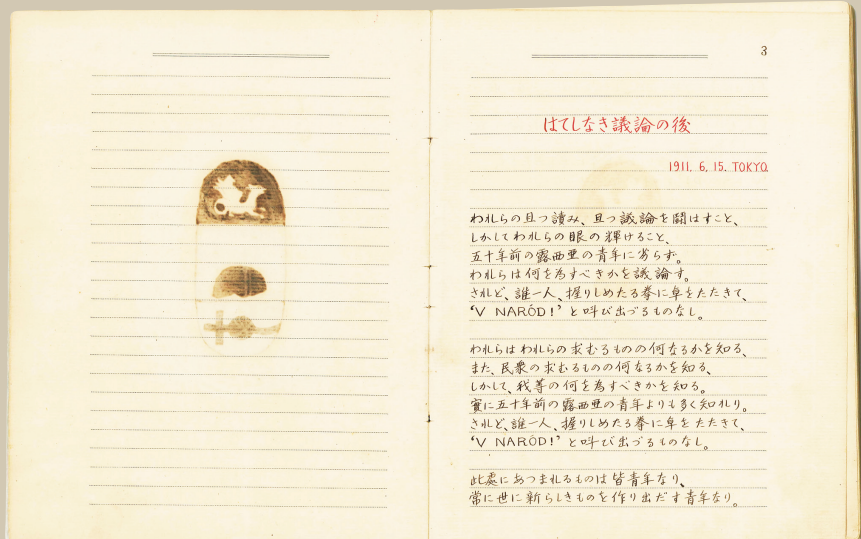 3
はてしなき議論の後
1911. 6. 15. TOKYO.
われらの且つ讀み、且つ議論を鬪はすこと、
しかしてわれらの眼の輝けること、
五十年前の露西亜の青年に劣らず。
われらは何を為すべきかを議論す。
されど、誰一人、握りしめたる拳に卓をたたきて、
‘V NARÓD!’ と叫び出づるものなし。
われらはわれらの求むるものの何なるかを知る、
また、民衆の求むるものの何なるかを知る、
しかして、我等の何を為すべきかを知る。
實に五十年前の露西亜の青年よりも多く知れり。
されど、誰一人、握りしめたる拳に卓をたたきて、
‘V NARÓD!’ と叫び出づるものなし。
此處にあつまれるものは皆青年なり、
常に世に新らしきものを作り出だす青年なり。